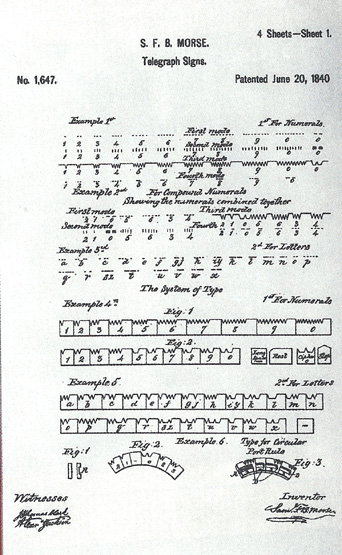 4 Sheets—Sheet 1.
S. F. B. MORSE.
Telegraph Signs.
No. 1,647.
Patented June 20, 1840
Example 1st
1st For Numerals.
First mode
1 2 3 4 5 6 7 8 9 0
Second mode
1 2 3 4 5 6 7 8 9 0
Third mode
1 2 3 4 5 6 7 8 9 0
Fourth mode
1 2 3 4 5 6 7 8 9 0
Example 2nd
For Compound Numerals
Shewing the numerals combined together
First mode
Third mode
Second mode
Fourth
Example 3rd
2nd For Letters
a b c d e f gj h iy k l m n o p
q r sz t u v w x
The System of Type
Example 4th
1st For Numerals
Fig: 1
1 2 3 4 5 6 7 8 9 0
Fig: 2.
1 2 3 4 5 6 7 8 9 0
Rest
Stop
Example 5
2nd For Letters
a b c d e f gj h iy k l m n
o p q r sz t u v w x
Example 6.
Type for Circular
Port Rule
Fig: 1
Fig: 2.
Fig: 3.
Witnesses
Inventor